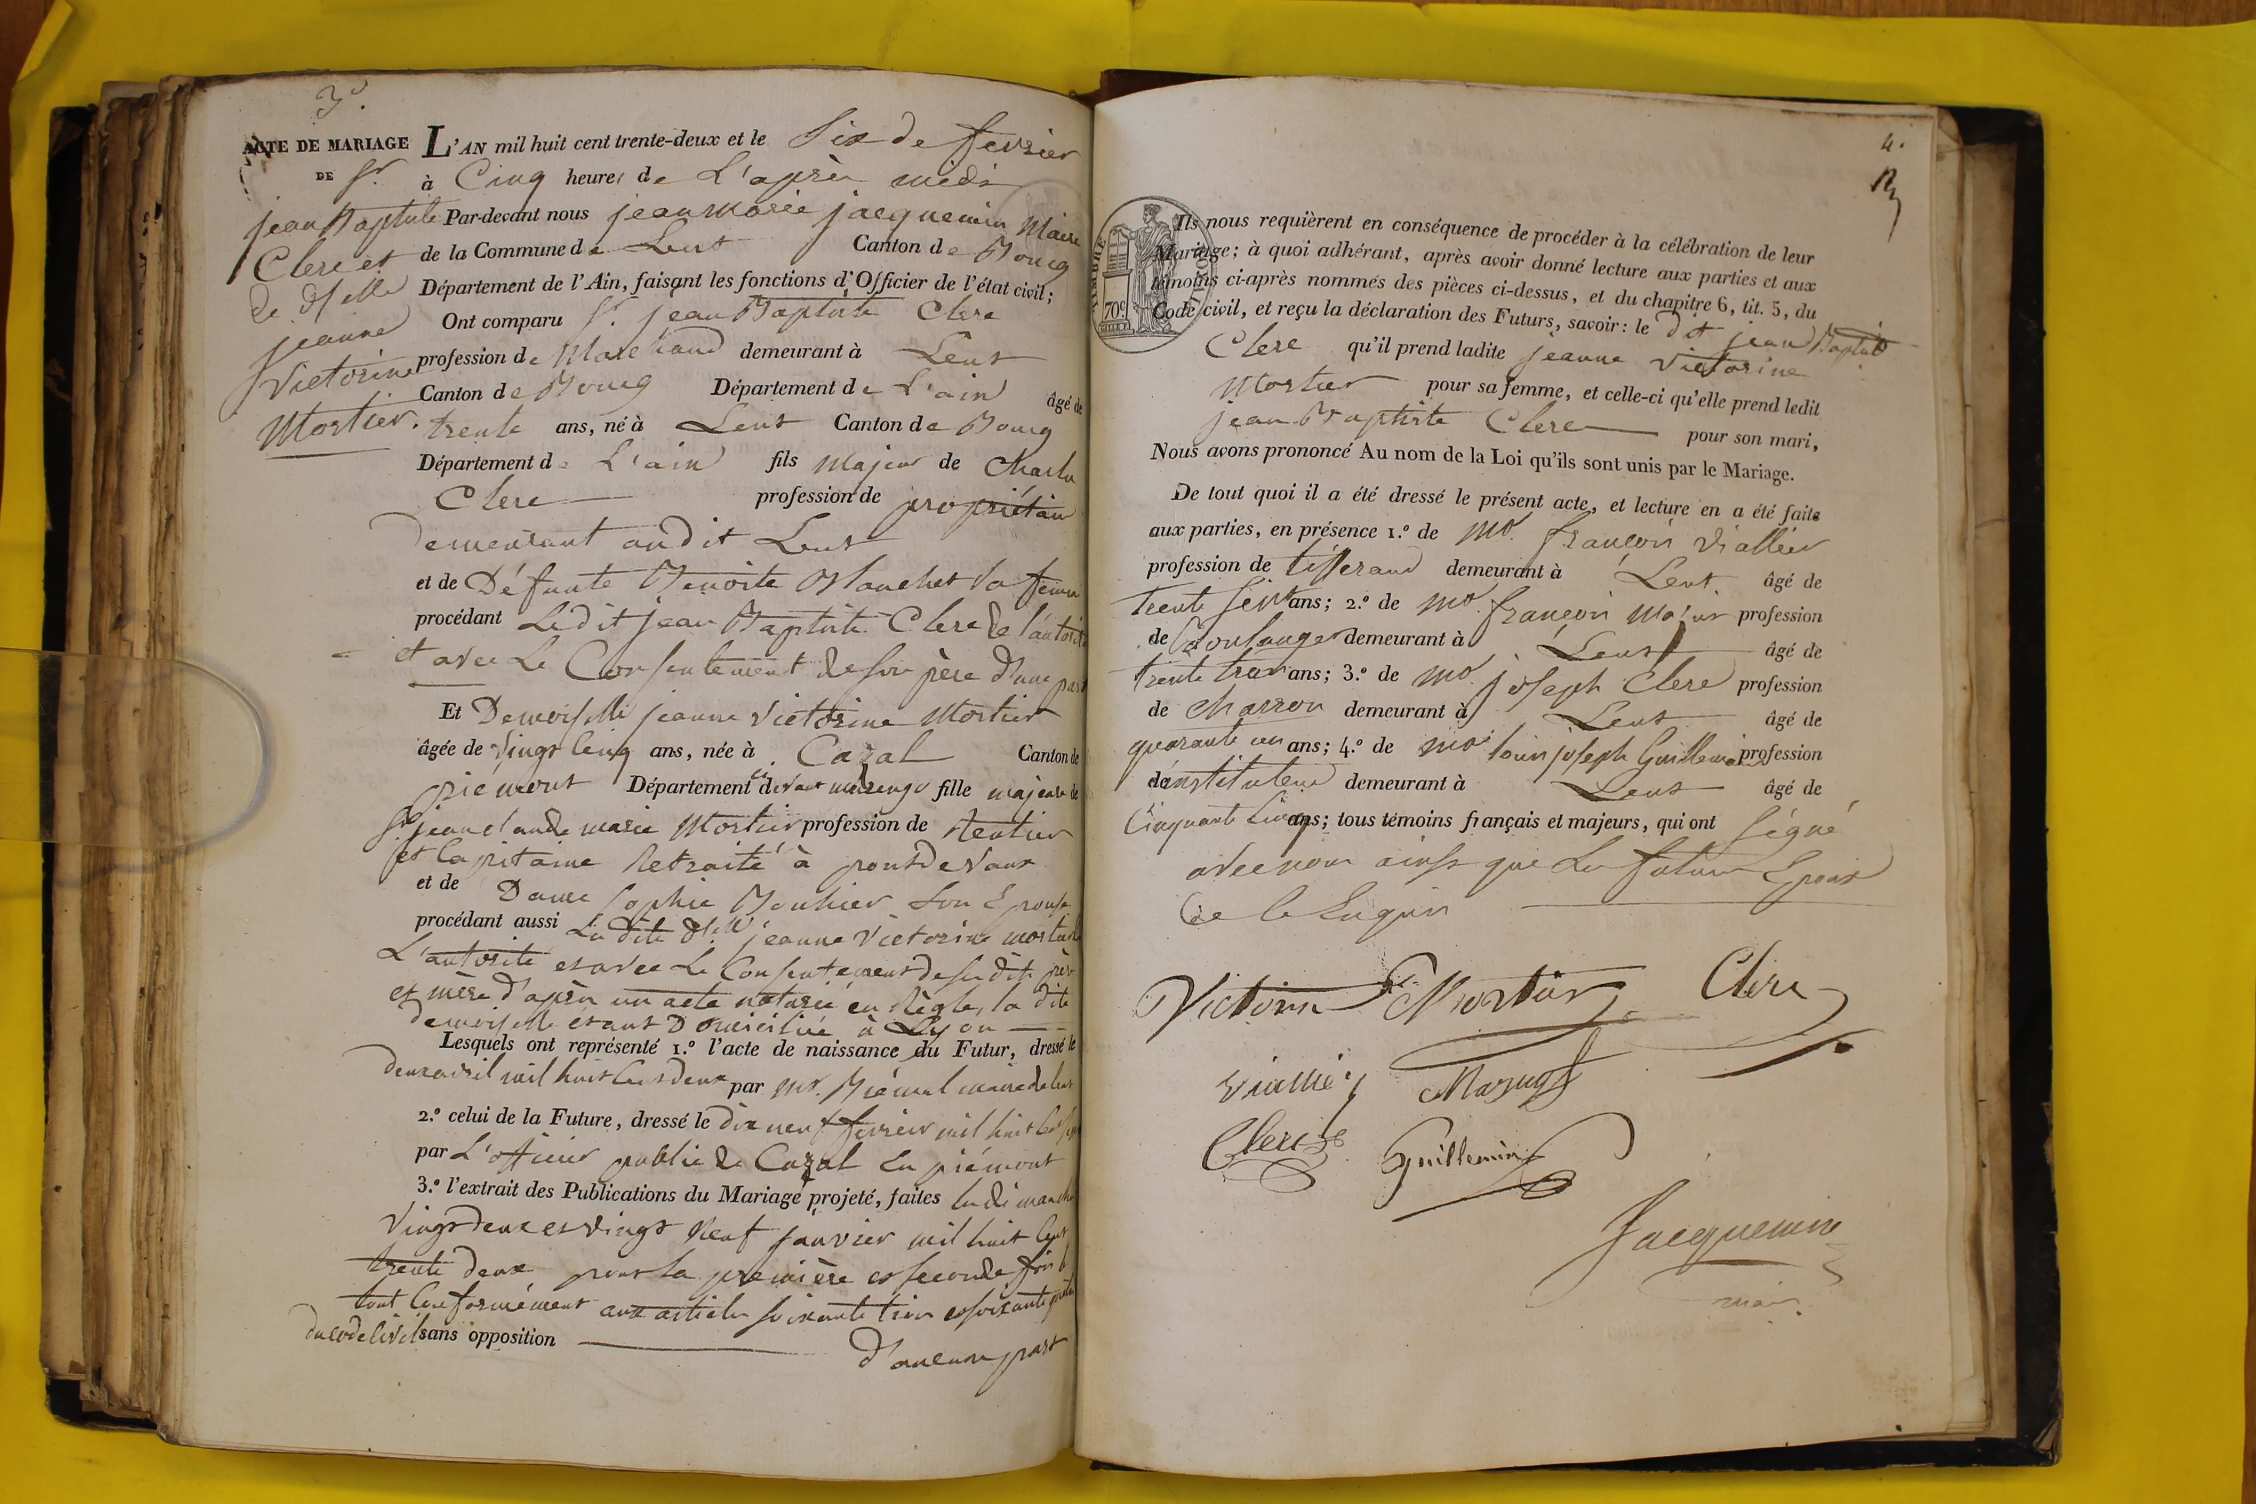 3e.
ACTE DE MARIAGE
DE Sr
jean Baptiste
Clerc et
de dselle
jeanne
Victorine
Mortier.
L'AN mil huit cent trente-deux et le Six de fevrier
à Cinq heures de L'après midi
Par-devant nous jean marie jacquemin Maire
de la Commune de Lent Canton de Bourg
Département de l'Ain, faisant les fonctions d'Officier de l'état civil;
Ont comparu Sr. jean Baptiste Clerc
profession de Marchand demeurant à Lent
Canton de Bourg Département de L'ain âgé de
trente ans, né à Lent Canton de Bourg
Département de L'ain fils majeur de Charles
Clerc profession de propriétaire
demeurant audit Lent
et de Défunte Benoite Blanchet sa femme
procédant Ledit jean Baptiste Clerc de l'autorité
et avec Le Consentement de son père d'une part
Et Demoiselle jeanne Victorine Mortier
âgée de Vingt Cinq ans, née à Cazal Canton de
piémont Département ci devant marengo fille majeure de
Sr jean claude marie Mortier profession de Rentier
et Capitaine Retraité à pont de Vaux
et de Dame Sophie Bouhier Son Epouse
procédant aussi La dite dlle jeanne Victorine mortier de
L'autorité et avec Le Consentement de ses dits père
et mère d'après un acte notarié en Règle, la dite
demoiselle étant Domiciliée à Lyon
Lesquels ont représenté 1.º l'acte de naissance du Futur, dressé le
deux avril mil huit Cent deux par mr. maire de lent
2.º celui de la Future, dressé le dix neuf fevrier mil huit Cent sept
par L'officier public de Cazal En piémont
3.º l'extrait des Publications du Mariage projeté, faites les dimanche
Vingt deux et Vingt Neuf janvier mil huit Cent
trente deux pour la première et seconde fois
tout Conformément aux articles soixante trois et soixante quatre
du code Civil sans opposition d'aucune part
4.
TIMBRE ROYAL
70c.
Ils nous requièrent en conséquence de procéder à la célébration de leur
Mariage; à quoi adhérant, après avoir donné lecture aux parties et aux
témoins ci-après nommés des pièces ci-dessus, et du chapitre 6, tit. 5, du
Code civil, et reçu la déclaration des Futurs, savoir: le dit jean Baptiste
Clerc qu'il prend ladite jeanne Victorine
Mortier pour sa femme, et celle-ci qu'elle prend ledit
jean Baptiste Clerc pour son mari,
Nous avons prononcé Au nom de la Loi qu'ils sont unis par le Mariage.
De tout quoi il a été dressé le présent acte, et lecture en a été faite
aux parties, en présence 1.º de mr. françois Viallier
profession de tisserand demeurant à Lent âgé de
trente sept ans; 2.º de mr. françois profession
de Boulanger demeurant à Lent âgé de
trente trois ans; 3.º de mr. joseph Clerc profession
de charron demeurant à Lent âgé de
quarante un ans; 4.º de mr louis joseph Guillemin profession
d'instituteur demeurant à Lent âgé de
Cinquante Cinq ans; tous témoins français et majeurs, qui ont signé
avec nous ainsi que Les futurs Epoux
de ce Enquis
Victorine Mortier Clerc
Viallier
Clerc Guillemin
Jacquemin
maire.